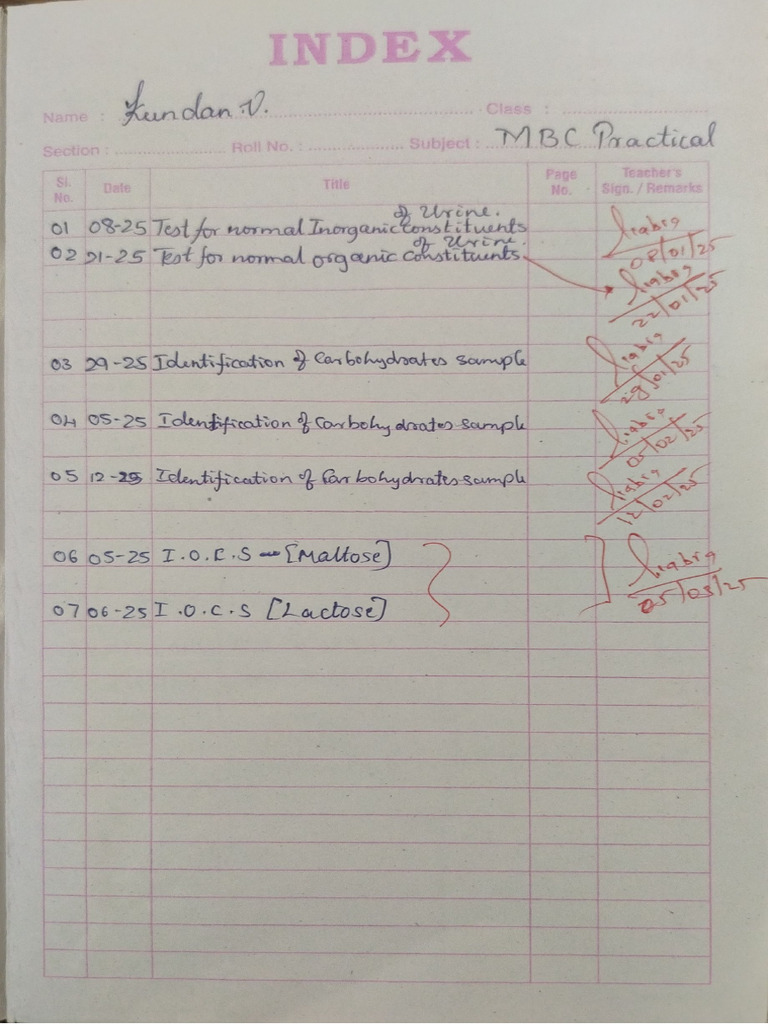 INDEX
Name : Kundan.V. Class :
Section : Roll No. : Subject : MBC Practical
Sl. No. Date Title Page No. Teacher's Sign. / Remarks
01 08-25 Test for normal Inorganic constituents of Urine.
08/01/25
02 21-25 Test for normal organic constituents of Urine.
22/01/25
03 29-25 Identification of Carbohydrates sample
29/01/25
04 05-25 Identification of Carbohydrates sample
05/02/25
05 12-25 Identification of Carbohydrates sample
12/02/25
06 05-25 I.O.C.S - [Maltose]
05/03/25
07 06-25 I.O.C.S [Lactose]